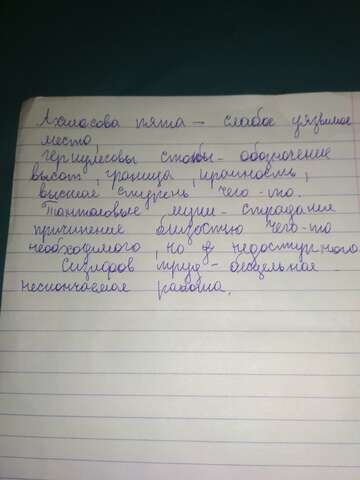 Ахилесова пята - слабое уязвимое
место,
Геркулесовы столбы - обозначение
высот, граница, крайность,
высшая степень чего-то.
Танталовые муки - страдания
причинения близостью чего-то
необходимого, но в недоступного
Сизифов труд - бесцельная
нескончаемая работа.